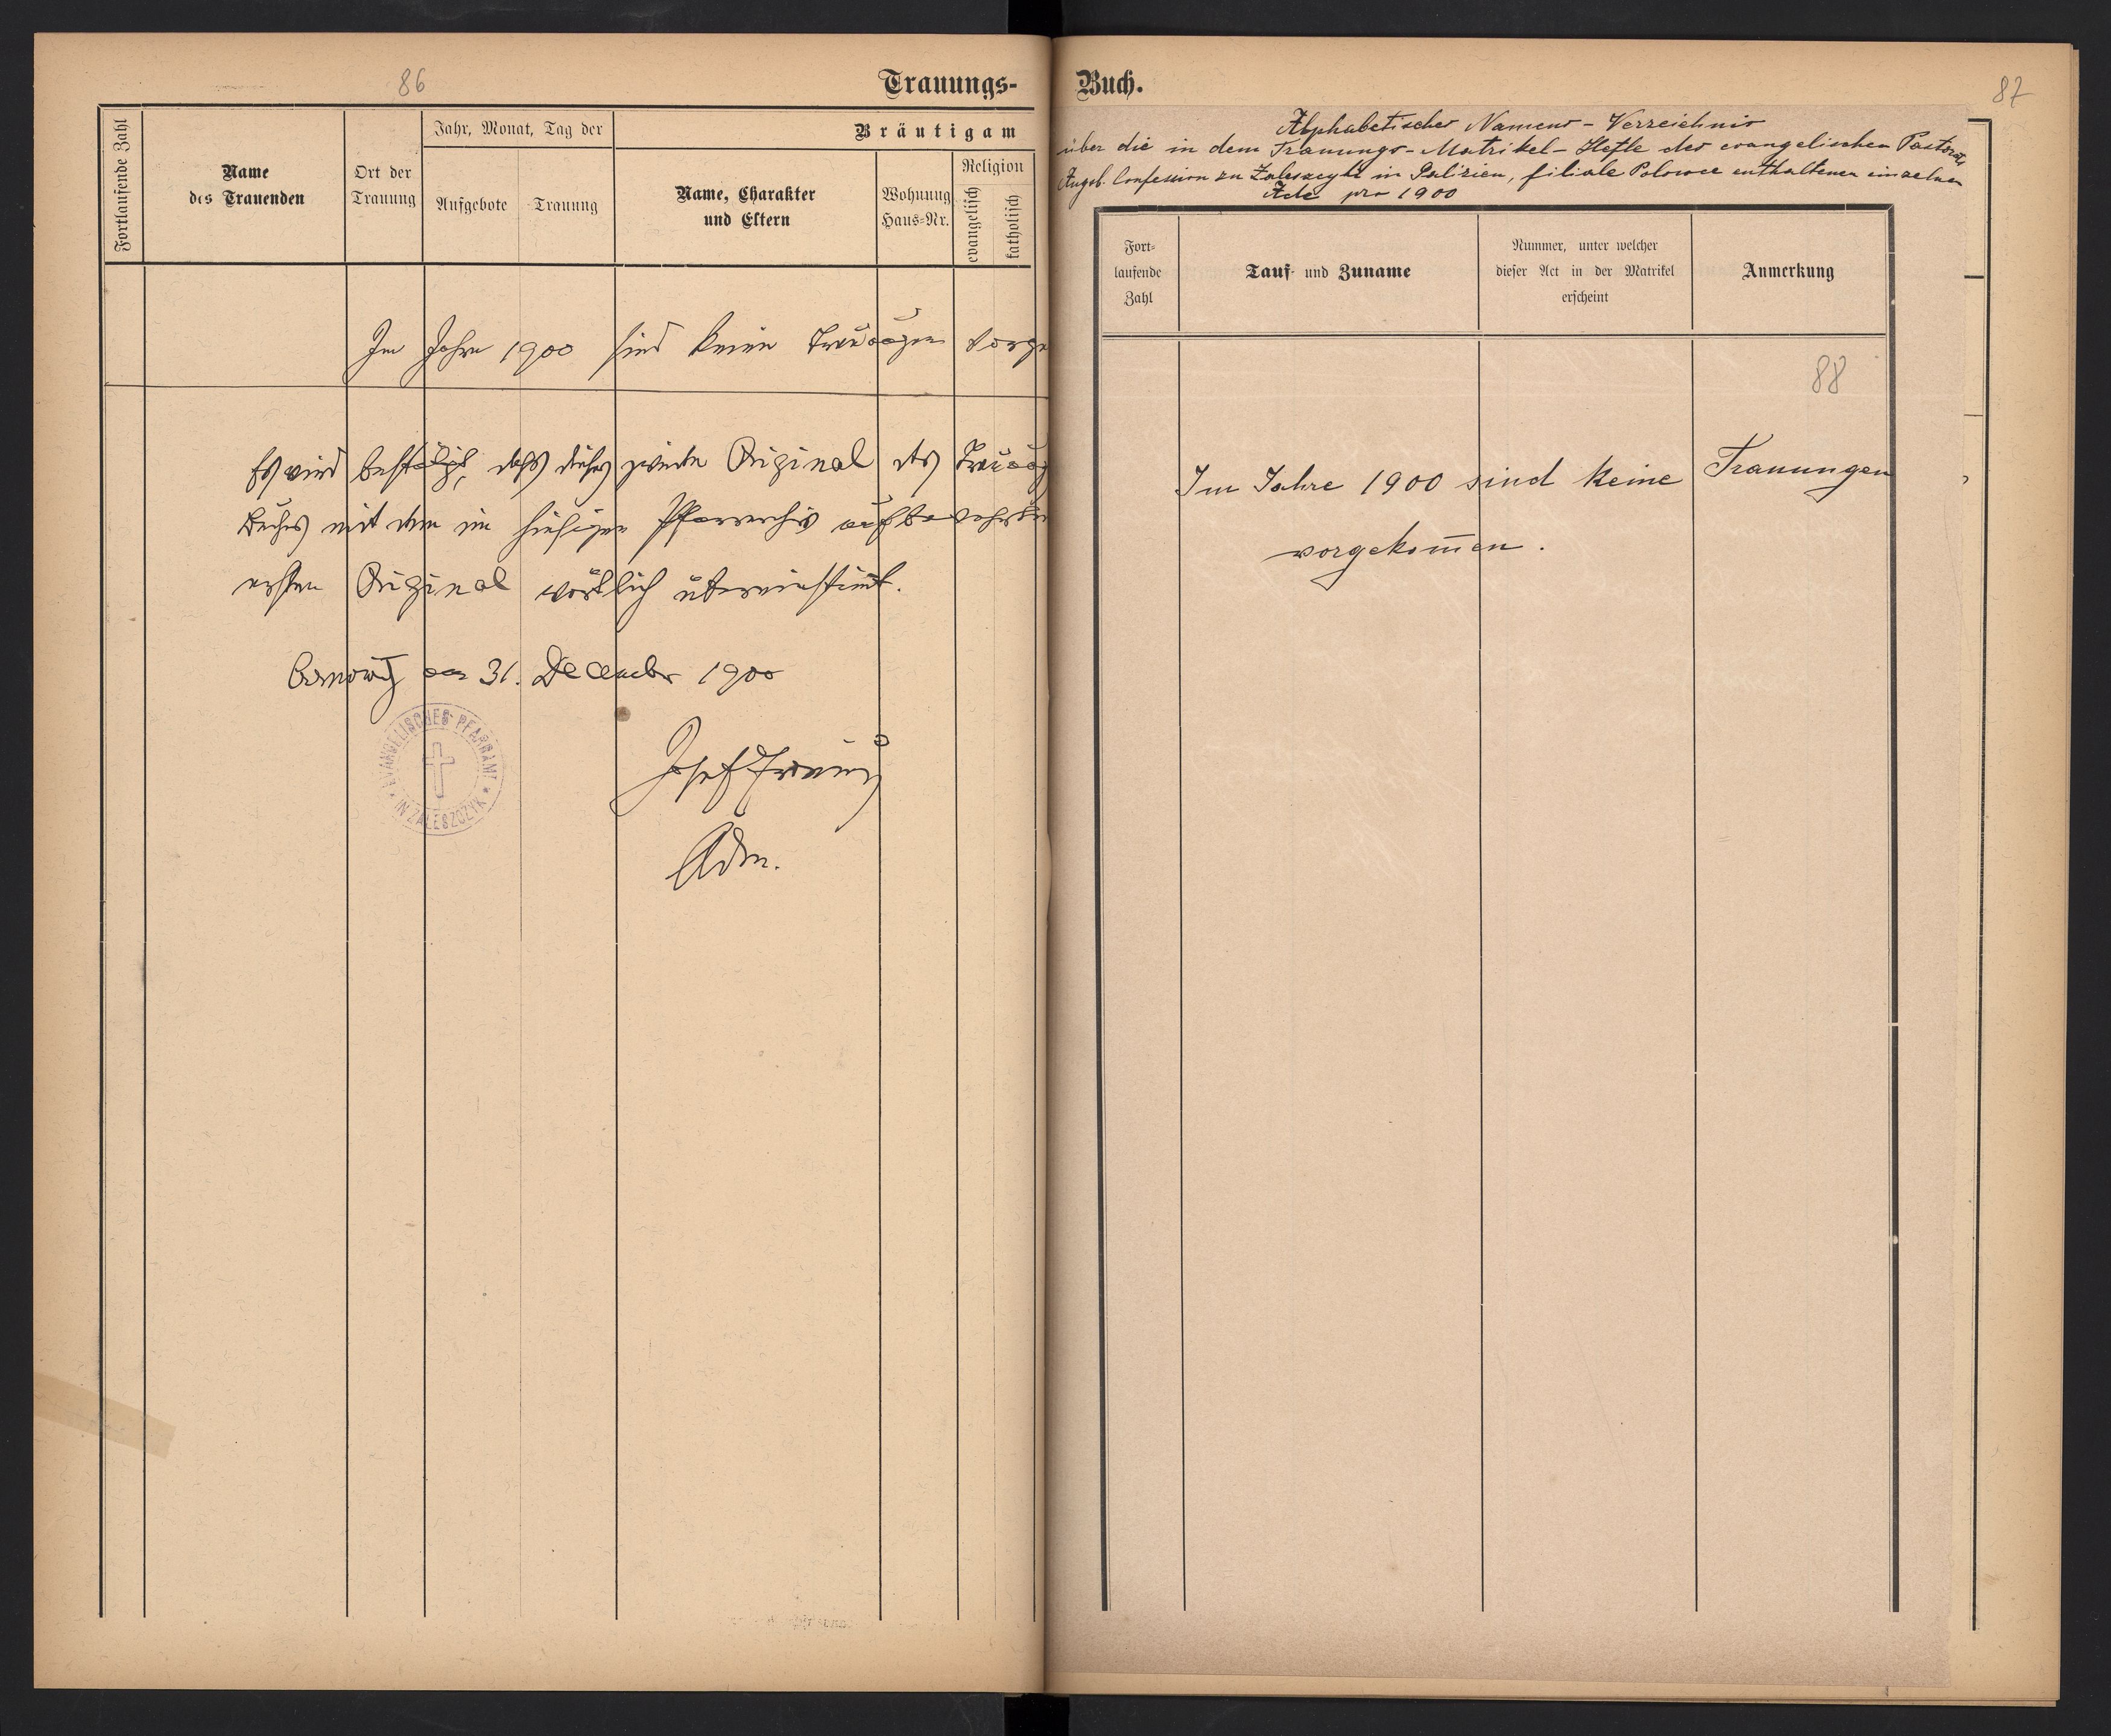 86
Trauungs-
Fortlaufende Zahl
Name
des Trauenden
Ort der
Trauung
Jahr, Monat, Tag der
Aufgebote
Trauung
Bräutigam
Name, Charakter
und Eltern
Wohnung
Haus-Nr.
Religion
evangelisch
katholisch
Im Jahre 1900 sind keine Trauungen vorge
Es wird bestätigt, daß dieses zweite Original des Trauung
Buches mit dem im hiesigen Pfarrarchiv aufbewahrten
ersten Original wörtlich übereinstimmt.
am 31. December 1900
EVANGELISCHES PFARRAMT
IN ZALESZCZYK
Josef
Adm.
Buch.
87
Alphabetisches Namens-Verzeichnis
über die in dem Trauungs-Matrikel-Hefte des evangelischen Pastorats
Augsb. Confession zu Zaleszczyki in Galizien, filiale Polowce enthaltenen einzelnen
Acte pro 1900
Fort-
laufende
Zahl
Tauf- und Zuname
Nummer, unter welcher
dieser Act in der Matrikel
erscheint
Anmerkung
88
Im Jahre 1900 sind keine Trauungen
vorgekom̄en.